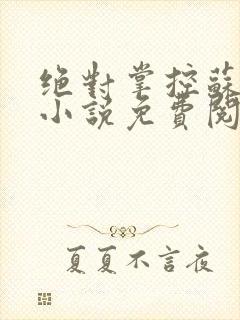 绝對掌控蘇
小說免費閱
夏夏不言夜